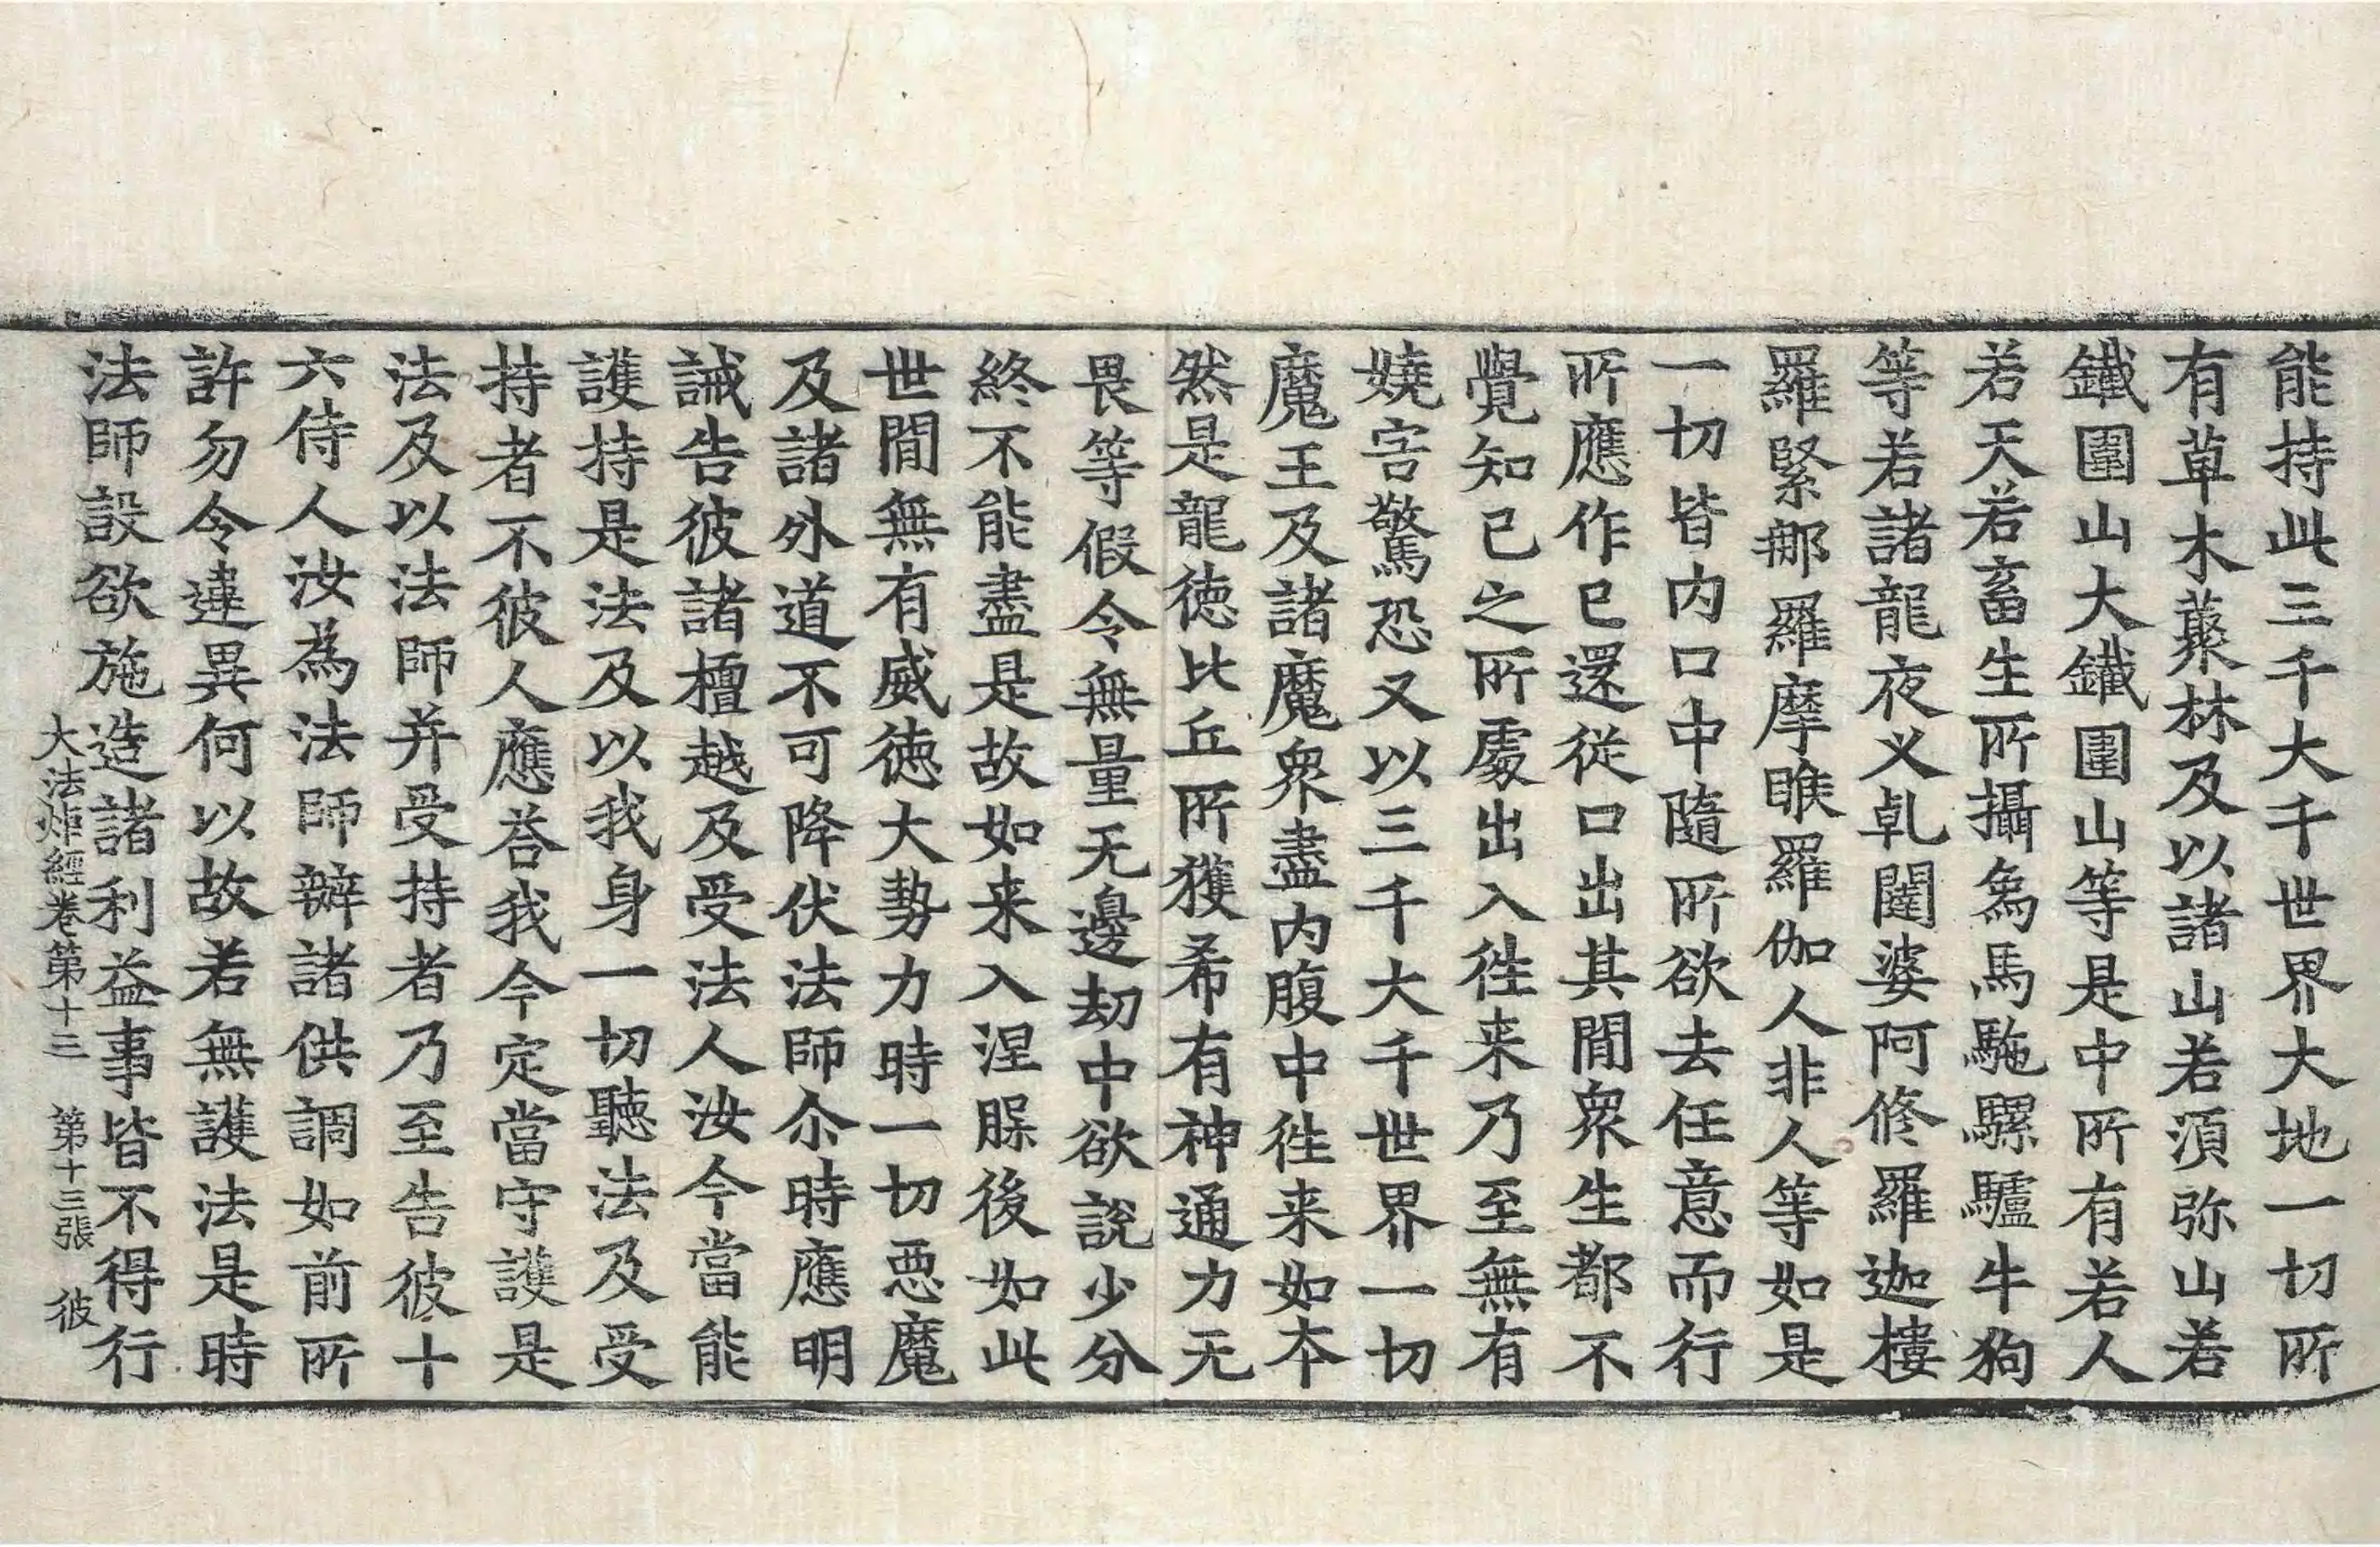 能持此三千大千世界大地一切所
有草木藂林及以諸山若湏弥山若
鐵圍山大鐵圍山等是中所有若人
若天若畜生所攝象馬駞騾驢牛狗
等若諸龍夜叉乹闥婆阿修羅迦樓
羅緊那羅摩睺羅伽人非人等如是
一切皆内口中隨所欲去任意而行
所應作已還從口出其間衆生都不
覺知已之所處出入徃来乃至無有
嬈害驚恐又以三千大千世界一切
魔王及諸魔衆盡内腹中徃来如本
然是龍徳比丘所獲希有神通力无
畏等假令無量无邊劫中欲說少分
終不能盡是故如来入涅槃後如此
世間無有威徳大勢力時一切惡魔
及諸外道不可降伏法師尒時應明
誡告彼諸檀越及受法人汝今當能
護持是法及以我身一切聽法及受
持者不彼人應荅我今定當守護是
法及以法師并受持者乃至告彼十
六侍人汝為法師辦諸供調如前所
許勿令違異何以故若無護法是時
法師設欲施造諸利益事皆不得行
大法炬經卷第十三 第十三張 彼